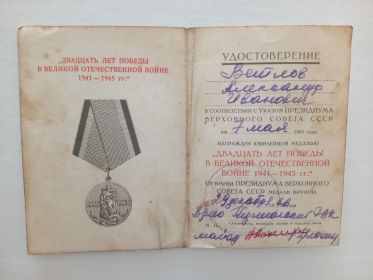 „ДВАДЦАТЬ ЛЕТ ПОБЕДЫ
В ВЕЛИКОЙ ОТЕЧЕСТВЕННОЙ ВОЙНЕ
1941—1945 гг."
УДОСТОВЕРЕНИЕ
Ветлов
Александр
Иванович
В СООТВЕТСТВИИ С УКАЗОМ ПРЕЗИДИУМА
ВЕРХОВНОГО СОВЕТА СССР
от 7 мая 1965 года
НАГРАЖДЕН ЮБИЛЕЙНОЙ МЕДАЛЬЮ
„ДВАДЦАТЬ ЛЕТ ПОБЕДЫ
В ВЕЛИКОЙ ОТЕЧЕСТВЕННОЙ
ВОЙНЕ 1941—1945 гг."
ОТ ИМЕНИ ПРЕЗИДИУМА ВЕРХОВНОГО
СОВЕТА СССР МЕДАЛЬ ВРУЧЕНА
М. П.